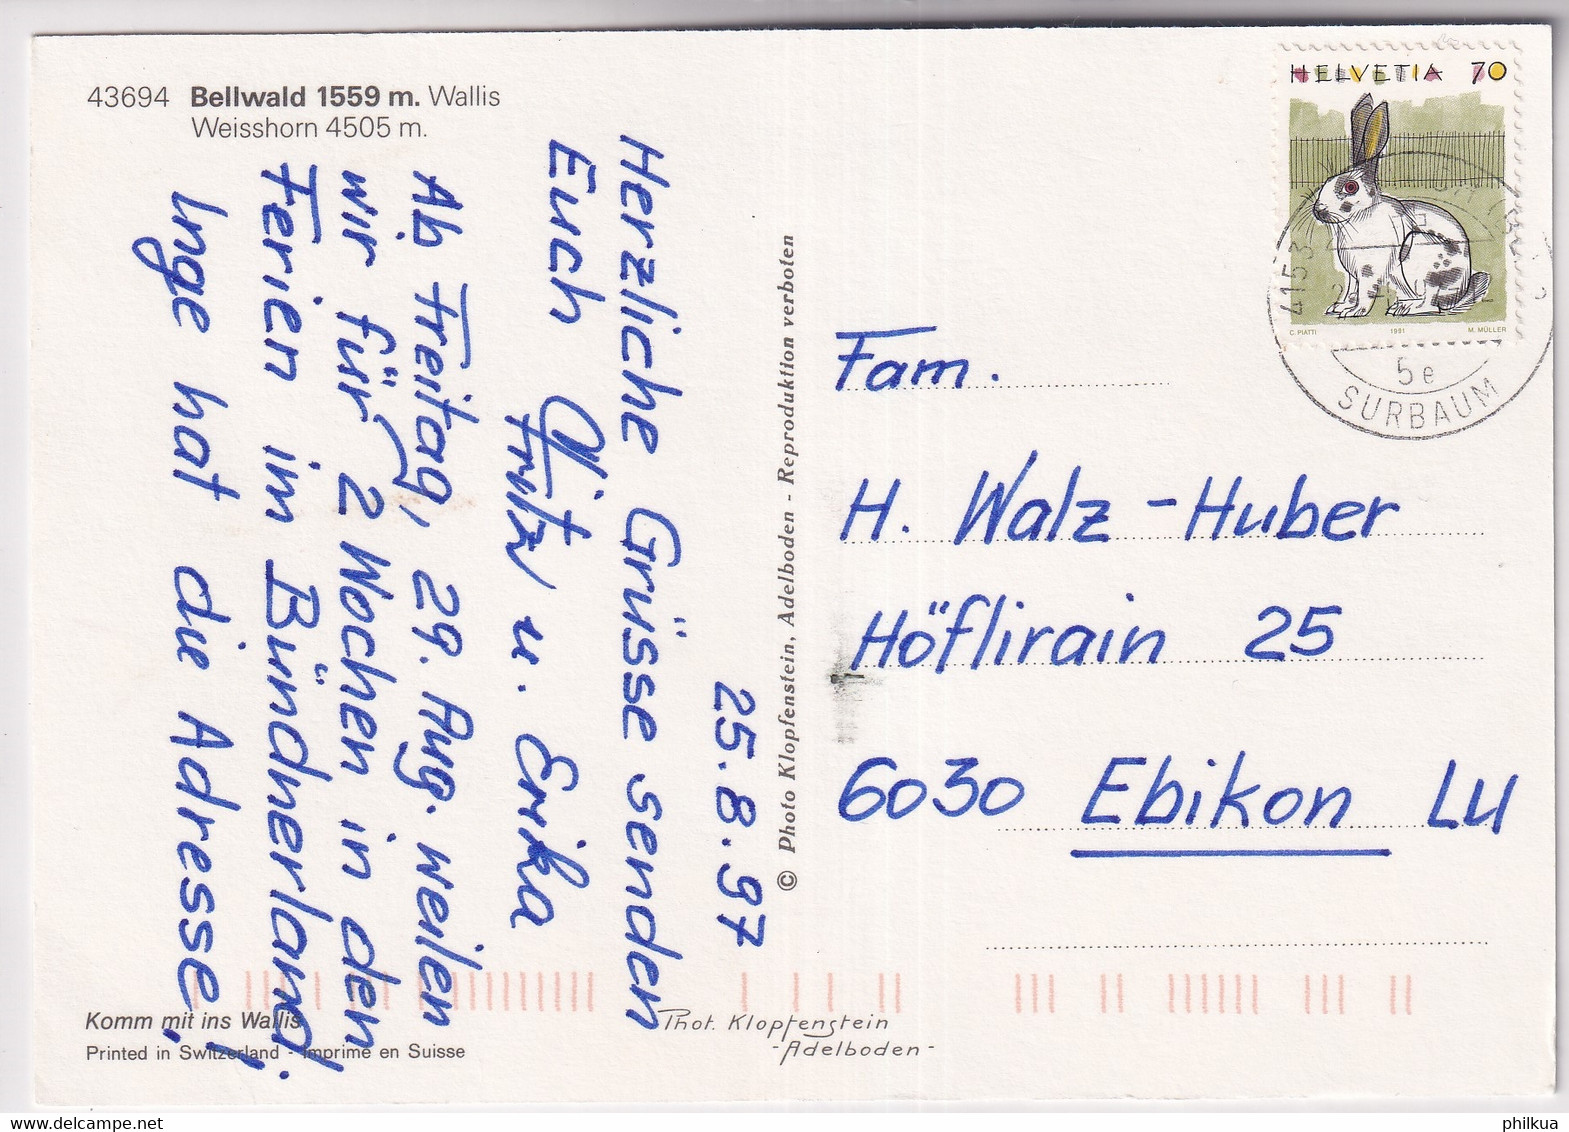 43694 Bellwald 1559 m. Wallis
Weisshorn 4505 m.
25.8.97
Herzliche Grüsse senden
Euch Fritz u. Erika
Ab Freitag, 29. Aug. weilen
wir für 2 Wochen in den
Ferien im Bündnerland;
Inge hat die Adresse!
© Photo Klopfenstein, Adelboden - Reproduktion verboten
HELVETIA 70
C. PIATTI 1991 M. MÜLLER
4153
5e
SURBAUM
Fam.
H. Walz-Huber
Höflirain 25
6030 Ebikon LU
Komm mit ins Wallis
Printed in Switzerland - Imprimé en Suisse
Phot. Klopfenstein
- Adelboden -
philkua